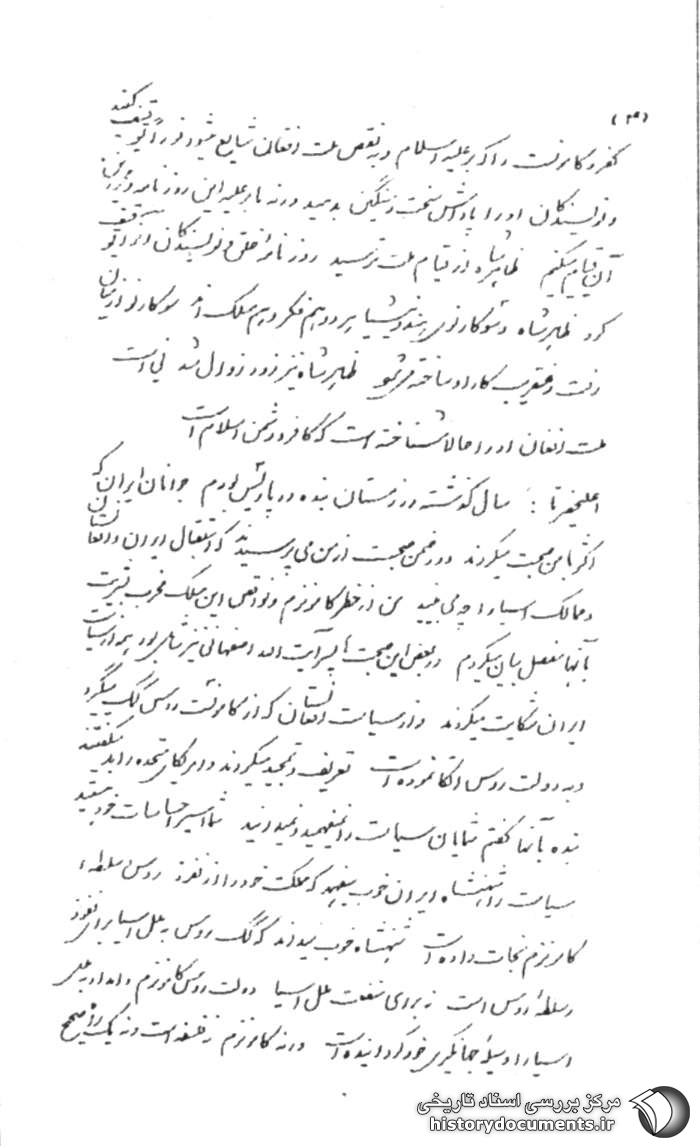 (۳)
کفر و کمونست را که بر علیه اسلام و به نقص ملت افغان شایع میشود فوراً توقیف کنند
و نویسندگان او را پاداش سخت و سنگین بدهید ورنه ما بر علیه این روزنامه و
آن قیام میکنیم ظاهرشاه از قیام ملت ترسید روزنامه خلق و نویسندگان آنرا توقیف
کرد ظاهرشاه و سوکارنوی هر دو هم فکر و هم مسلک اند سوکارنو از میان
رفت و عنقریب کار او ساخته میشود ظاهرشاه نیز زود زوال شدنی است
ملت افغان او را حالا شناخته است که کافر و دشمن اسلام است
اعلیحضرتا : سال گذشته در زمستان بنده در پاریس بودم جوانان ایران که
اکثر با من صحبت میکردند و در ضمن صحبت از من می پرسیدند که استقبال ایران و افغانستان
و ممالک اسیا را چه می بینید من از خطر کمونزم و نواقص این مسلک مخرب بشریت
بآنها مفصل بیان میکردم در بعض این صحبت ها پسر آیت الله اصفهانی نیز شامل بود همه از سیاست
ایران شکایت میکردند و از سیاست افغانستان که از کمونست روس کمک میگیرد
و به دولت روس اتکا نموده است تعریف و تمجید میکردند و امریکای متحده را بد میگفتند
بنده بآنها گفتم شمایان سیاست را نمیفهمید و نمیدانید شما اسیر احساسات خود هستید
سیاست را شهنشاه ایران خوب میفهمد که مملکت خود را از نفوذ روس و سلطه
کمونزم نجات داده است شهنشاه خوب میداند که کمک روس به ملل اسیا برای نفوذ
و سلطه روس است نه برای منفعت ملل اسیا دولت روس کمونزم و امداد به ملل
اسیا را وسیله جهانگیری خود گردانیده است ورنه کمونزم نه فلسفه است و نه یک راه صحیح
مرکز بررسی اسناد تاریخی
historydocuments.ir